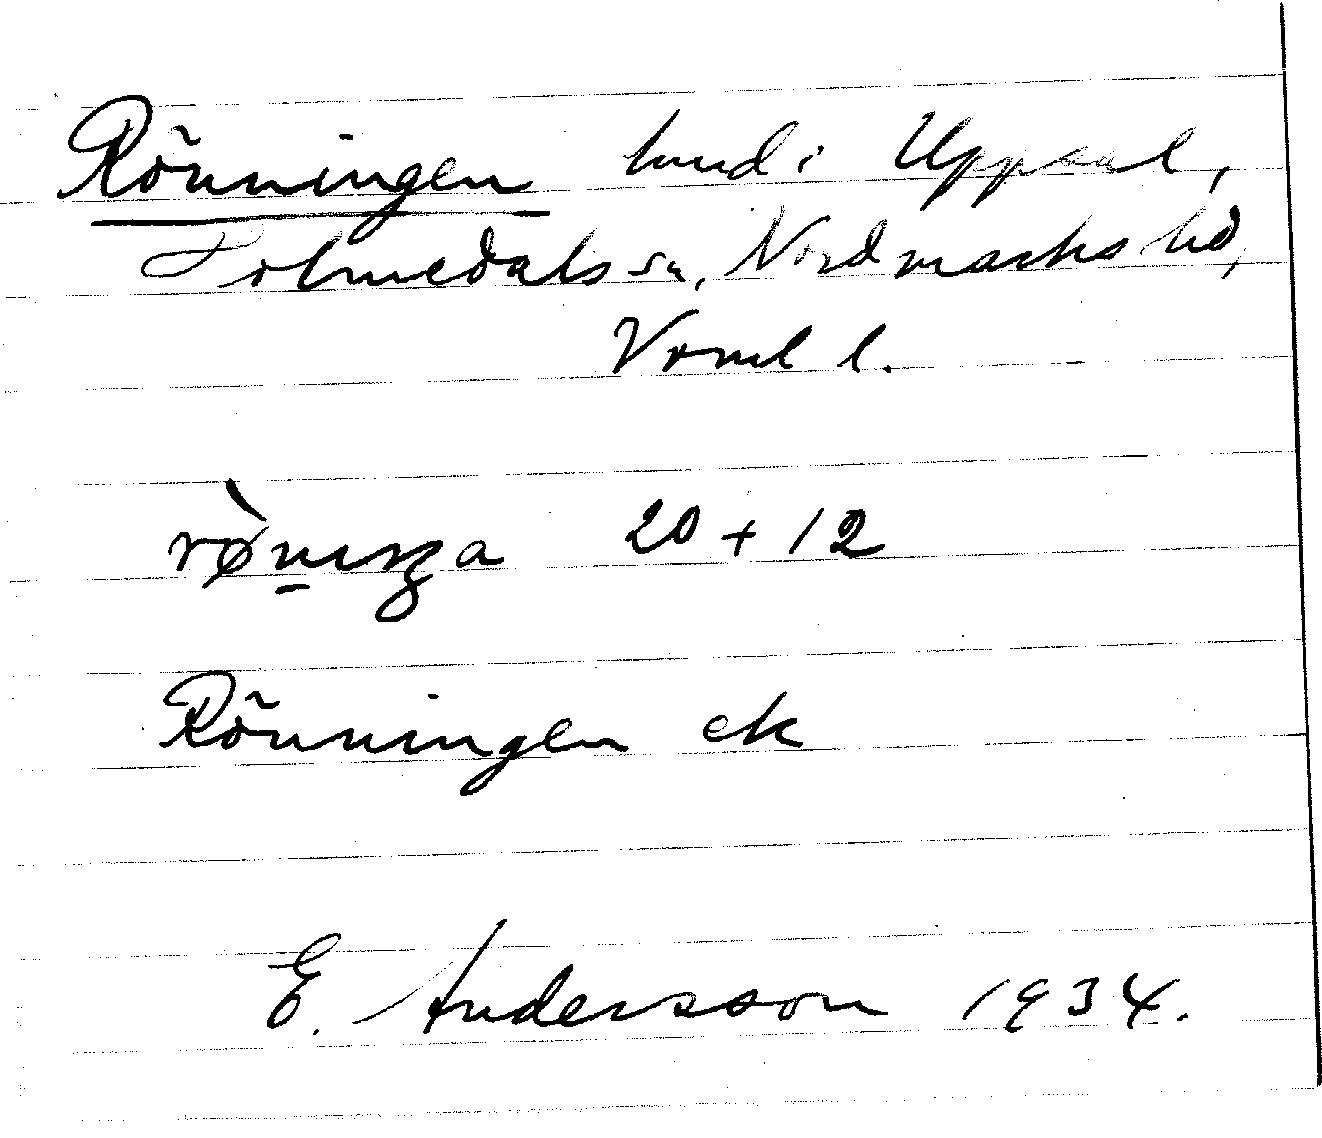 Rönningen hmd i Uppsal,
Holmedals sn, Nordmarks hd,
Vrml l.
rø̀nıŋa 20 + 12
Rönningen ek
E. Andersson 1934.